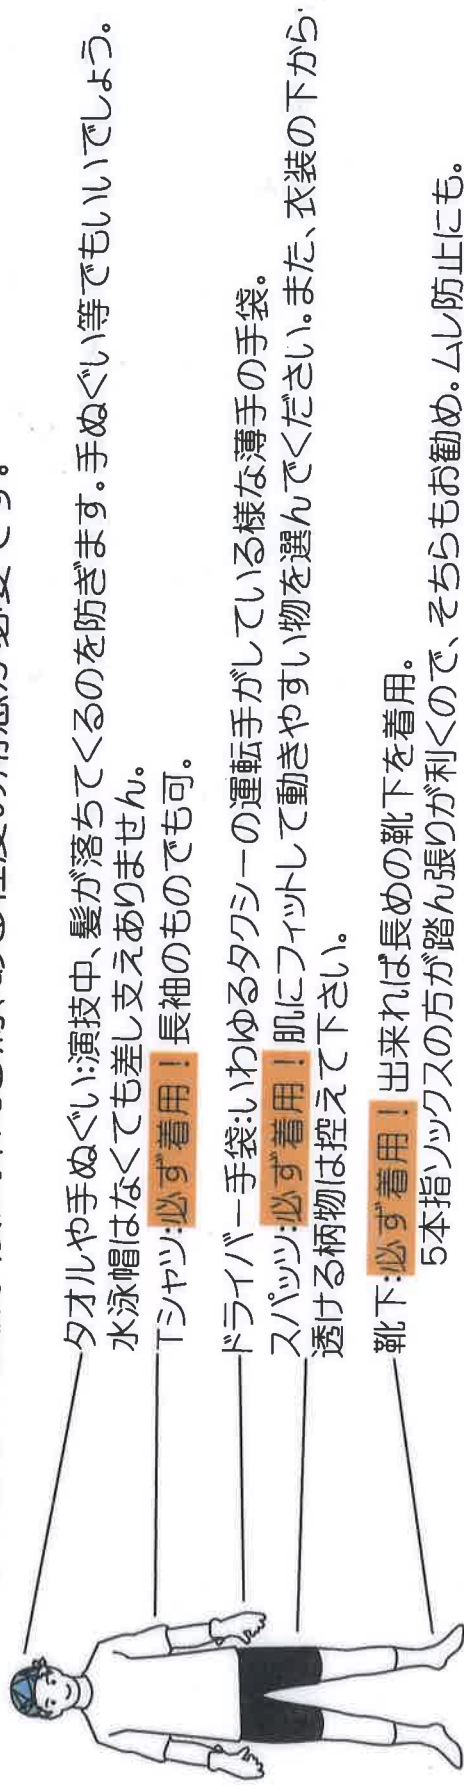 タオルや手ぬぐい:演技中、髪が落ちてくるのを防ぎます。手ぬぐい等でもいいでしょう。
水泳帽はなくても差し支えありません。
Tシャツ:必ず着用！ 長袖のものでも可。
ドライバー手袋:いわゆるタクシーの運転手がしている様な薄手の手袋。
スパッツ:必ず着用！ 肌にフィットして動きやすい物を選んでください。また、衣装の下から
透ける柄物は控えて下さい。
靴下:必ず着用！ 出来れば長めの靴下を着用。
5本指ソックスの方が踏ん張りが利くので、そちらもお勧め。ムレ防止にも。